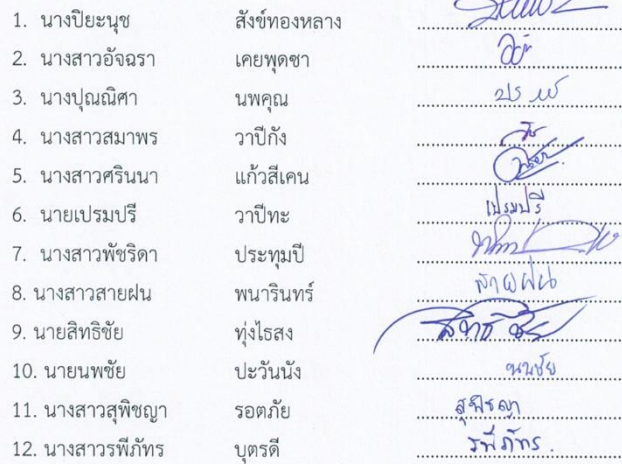 1. นางปิยะนุช สังข์ทองหลาง
2. นางสาวอัจฉรา เคยพุดซา
3. นางปุณณิศา นพคุณ
4. นางสาวสมาพร วาปีกัง
5. นางสาวศรินนา แก้วสีเคน
6. นายเปรมปรี วาปีทะ เปรมปรี
7. นางสาวพัชริดา ประทุมปี
8. นางสาวสายฝน พนารินทร์ สายฝน
9. นายสิทธิชัย ทุ่งไธสง สิทธิชัย
10. นายนพชัย ปะวันนัง นพชัย
11. นางสาวสุพิชญา รอตภัย สุพิชญา
12. นางสาวรพีภัทร บุตรดี รพีภัทร.